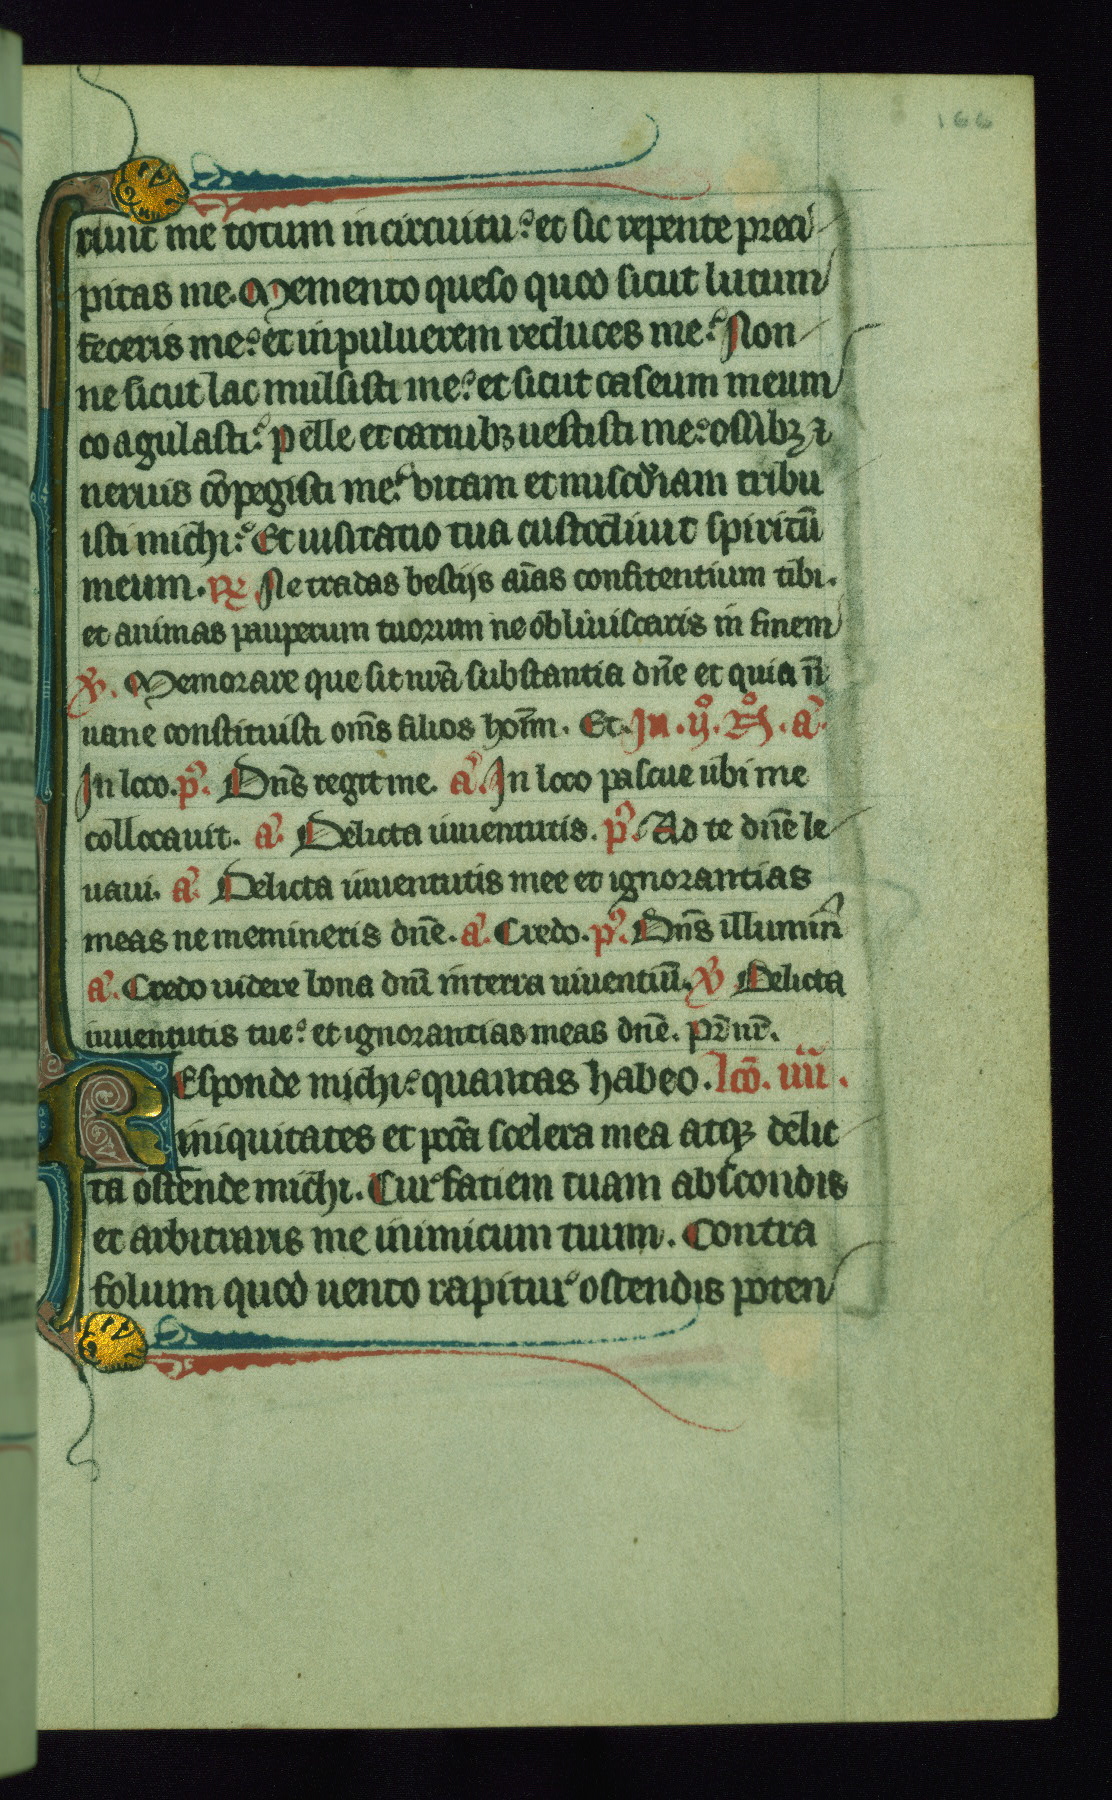 166
runt me totum in circuitu: et sic repente preci
pitas me. Memento queso quod sicut lutum
feceris me: et in puluerem reduces me: Non
ne sicut lac mulsisti me: et sicut caseum meum
coagulasti: pelle et carnibꝫ uestisti me: ossibꝫ ⁊
neruis cōpegisti me: vitam et miscd̓iam tribu
isti michi: Et uisitatio tua custodiuit spiritū
meum. R̷ Ne tradas bestijs aīas confitentium tibi.
et animas pauperum tuorum ne obliuiscaris in finem
V̷. Memorare que sit nr̄a substantia dn̄e et quia n̄
uane constituisti om̄s filios hom̄m. Et. In .ijº. Nº. a̓.
In loco. p̓s. Dn̄s regit me. a̓. In loco pascue ubi me
collocauit. a̓. Delicta iuuentutis. p̓s. Ad te dn̄e le
uaui. a̓. Delicta iuuentutis mee et ignorantias
meas ne memineris dn̄e. a̓. Credo. p̓s. Dn̄s illumin̄
a̓. Credo uidere bona dn̄i in terra uiuentiū. V̷ Delicta
iuuentutis tue: et ignorantias meas dn̄e. pr̄ nr̄.
Responde michi: quantas habeo. lcō. iiij.
iniquitates et pccā scelera mea atqꝫ delic
ta ostende michi. Cur faciem tuam abscondis
et arbitraris me inimicum tuum. Contra
folium quod uento rapitur ostendis poten